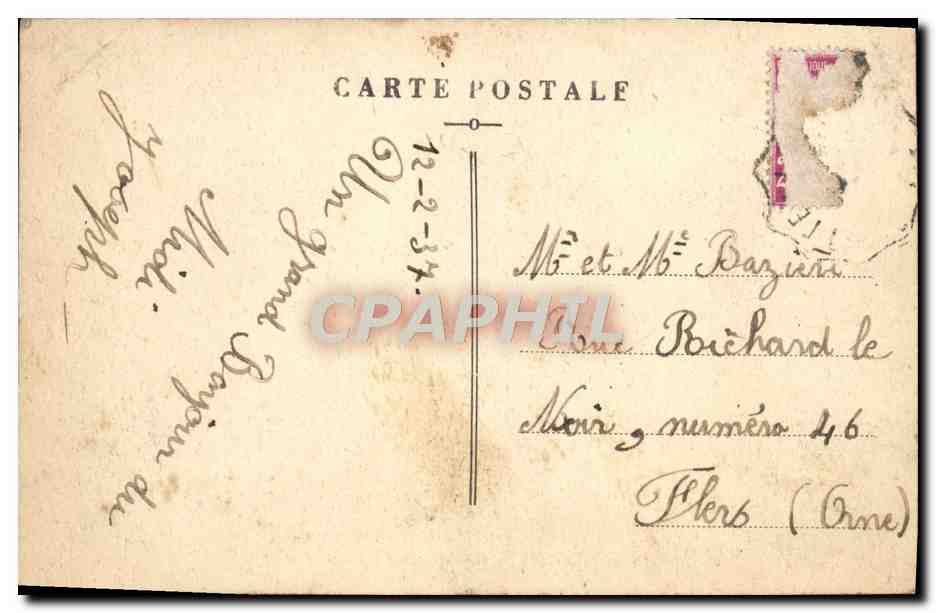 CARTE POSTALE
12-2-37.
Un grand Bonjour du
Midi.
Joseph
Mr et Me Bazieri
Rue Richard le
Noir, numéro 46
Flers (Orne)
CPAPHIL